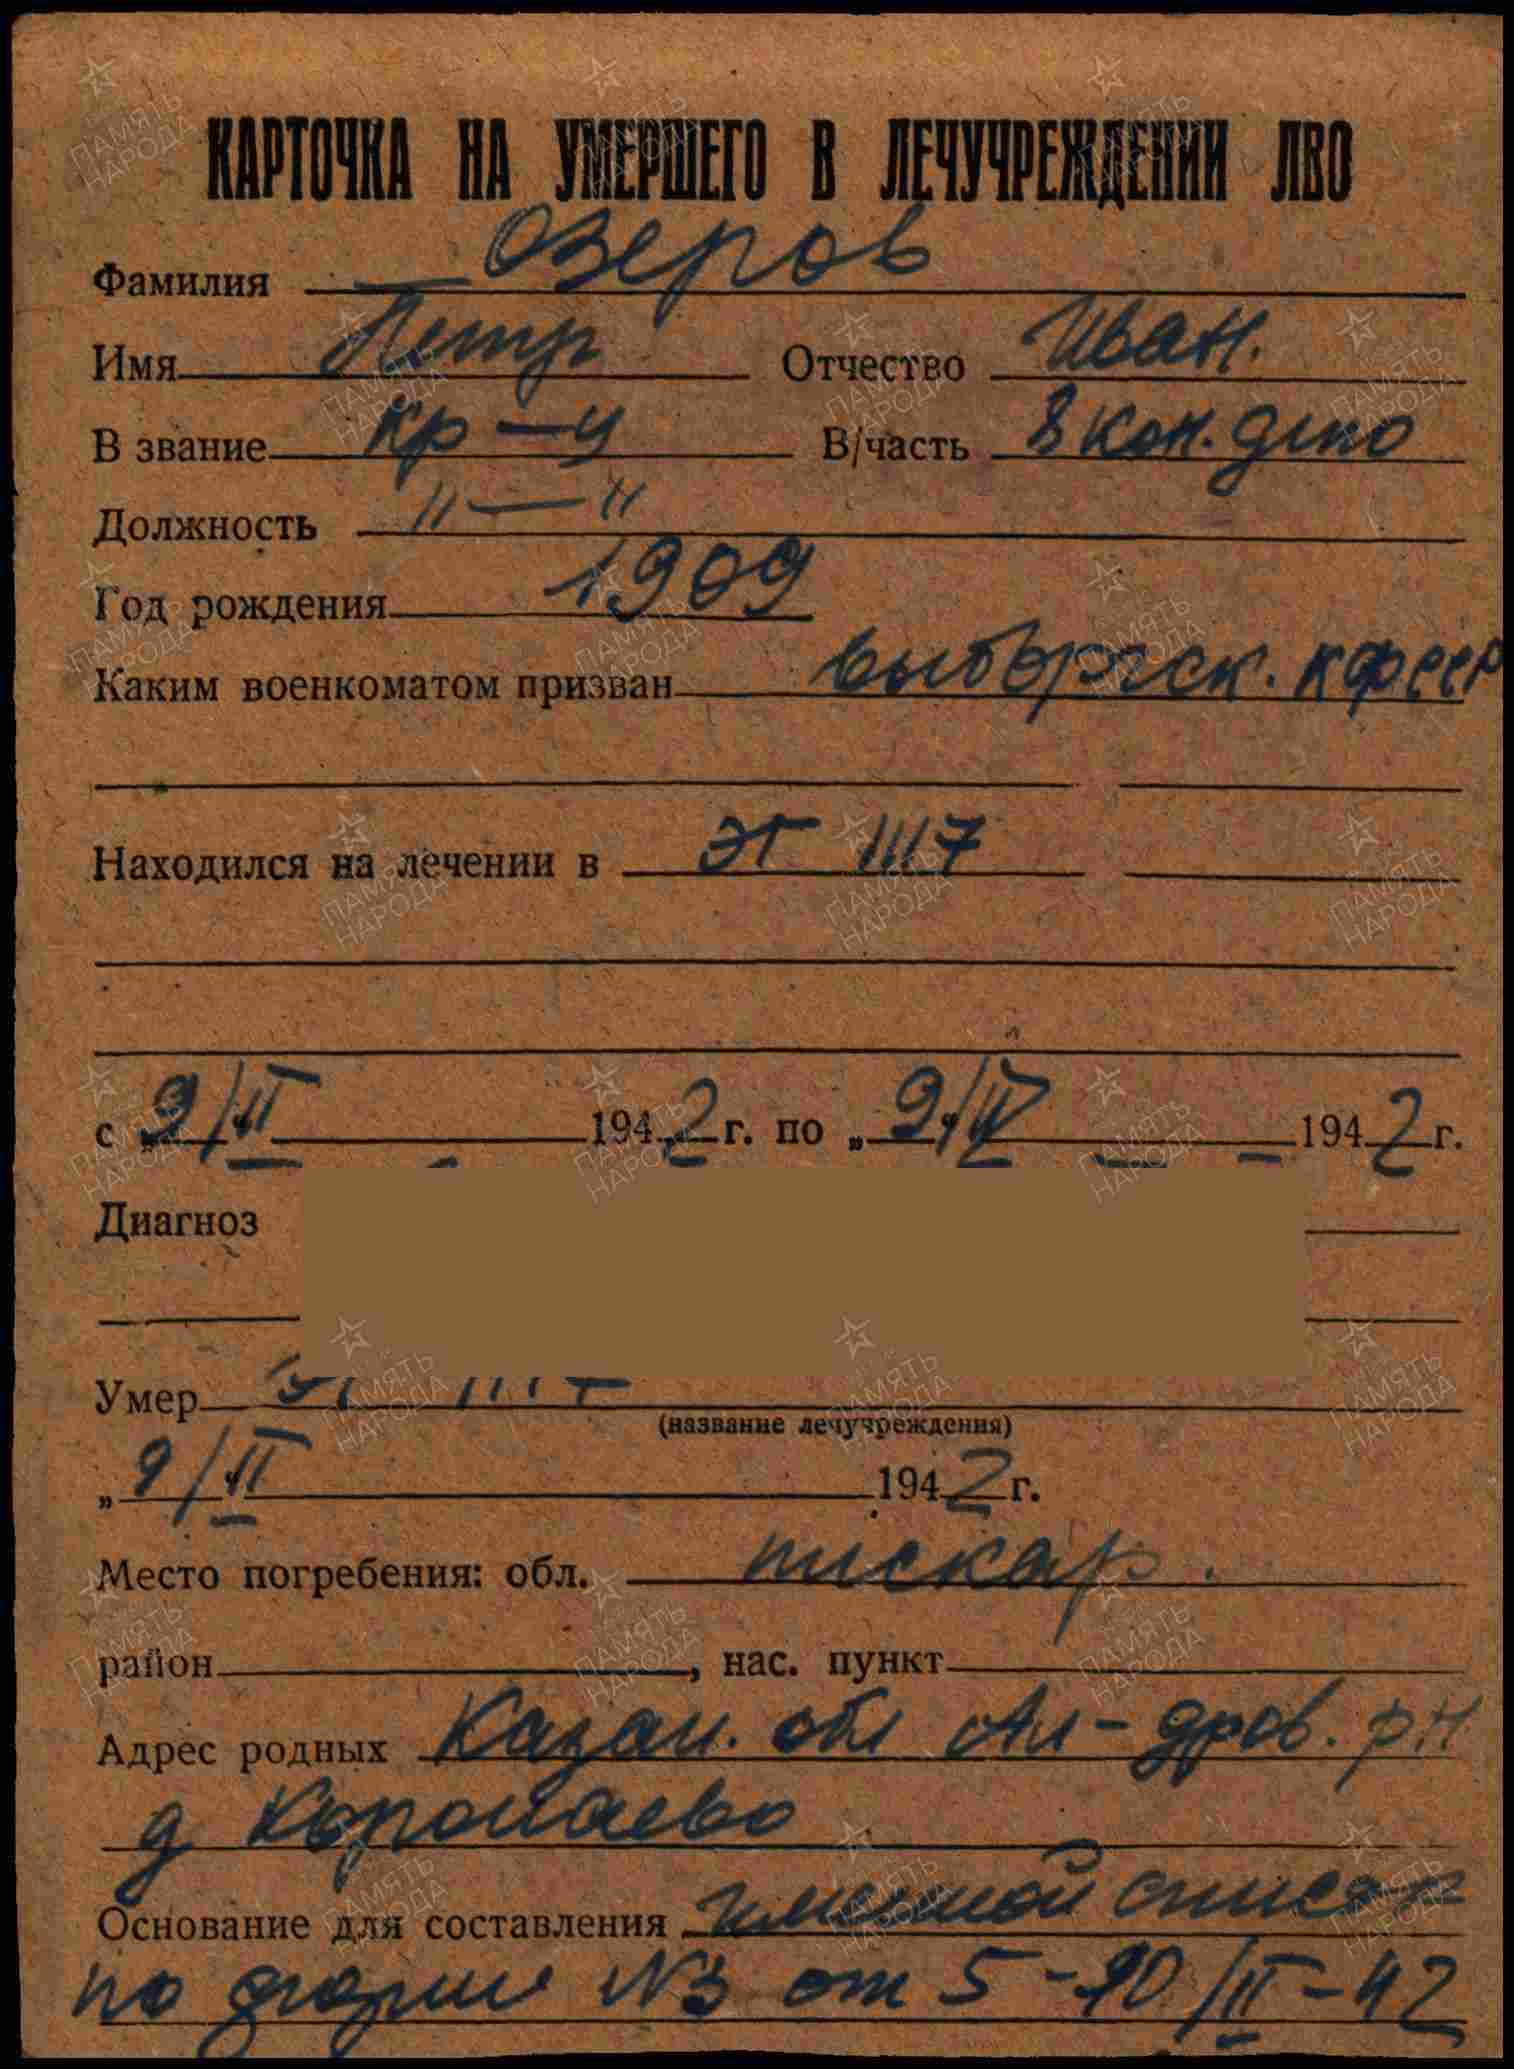 КАРТОЧКА НА УМЕРШЕГО В ЛЕЧУЧРЕЖДЕНИИ ЛВО
Фамилия Озеров
Имя Петр Отчество Иван.
В звание кр-ц В/часть 8 кон.
Должность "—"
Год рождения 1909
Каким военкоматом призван Выборгск. КФССР
Находился на лечении в ЭГ 1117
с „9/II 1942 г. по „9/IV 1942 г.
Диагноз
Умер ЭГ 1117
(название лечучреждения)
„9/II 1942 г.
Место погребения: обл. пискар.
район , нас. пункт
Адрес родных Казан. обл Ал-дров. р.н
д
Основание для составления именной список
по форме №3 от 5-10/II-42
ПАМЯТЬ НАРОДА